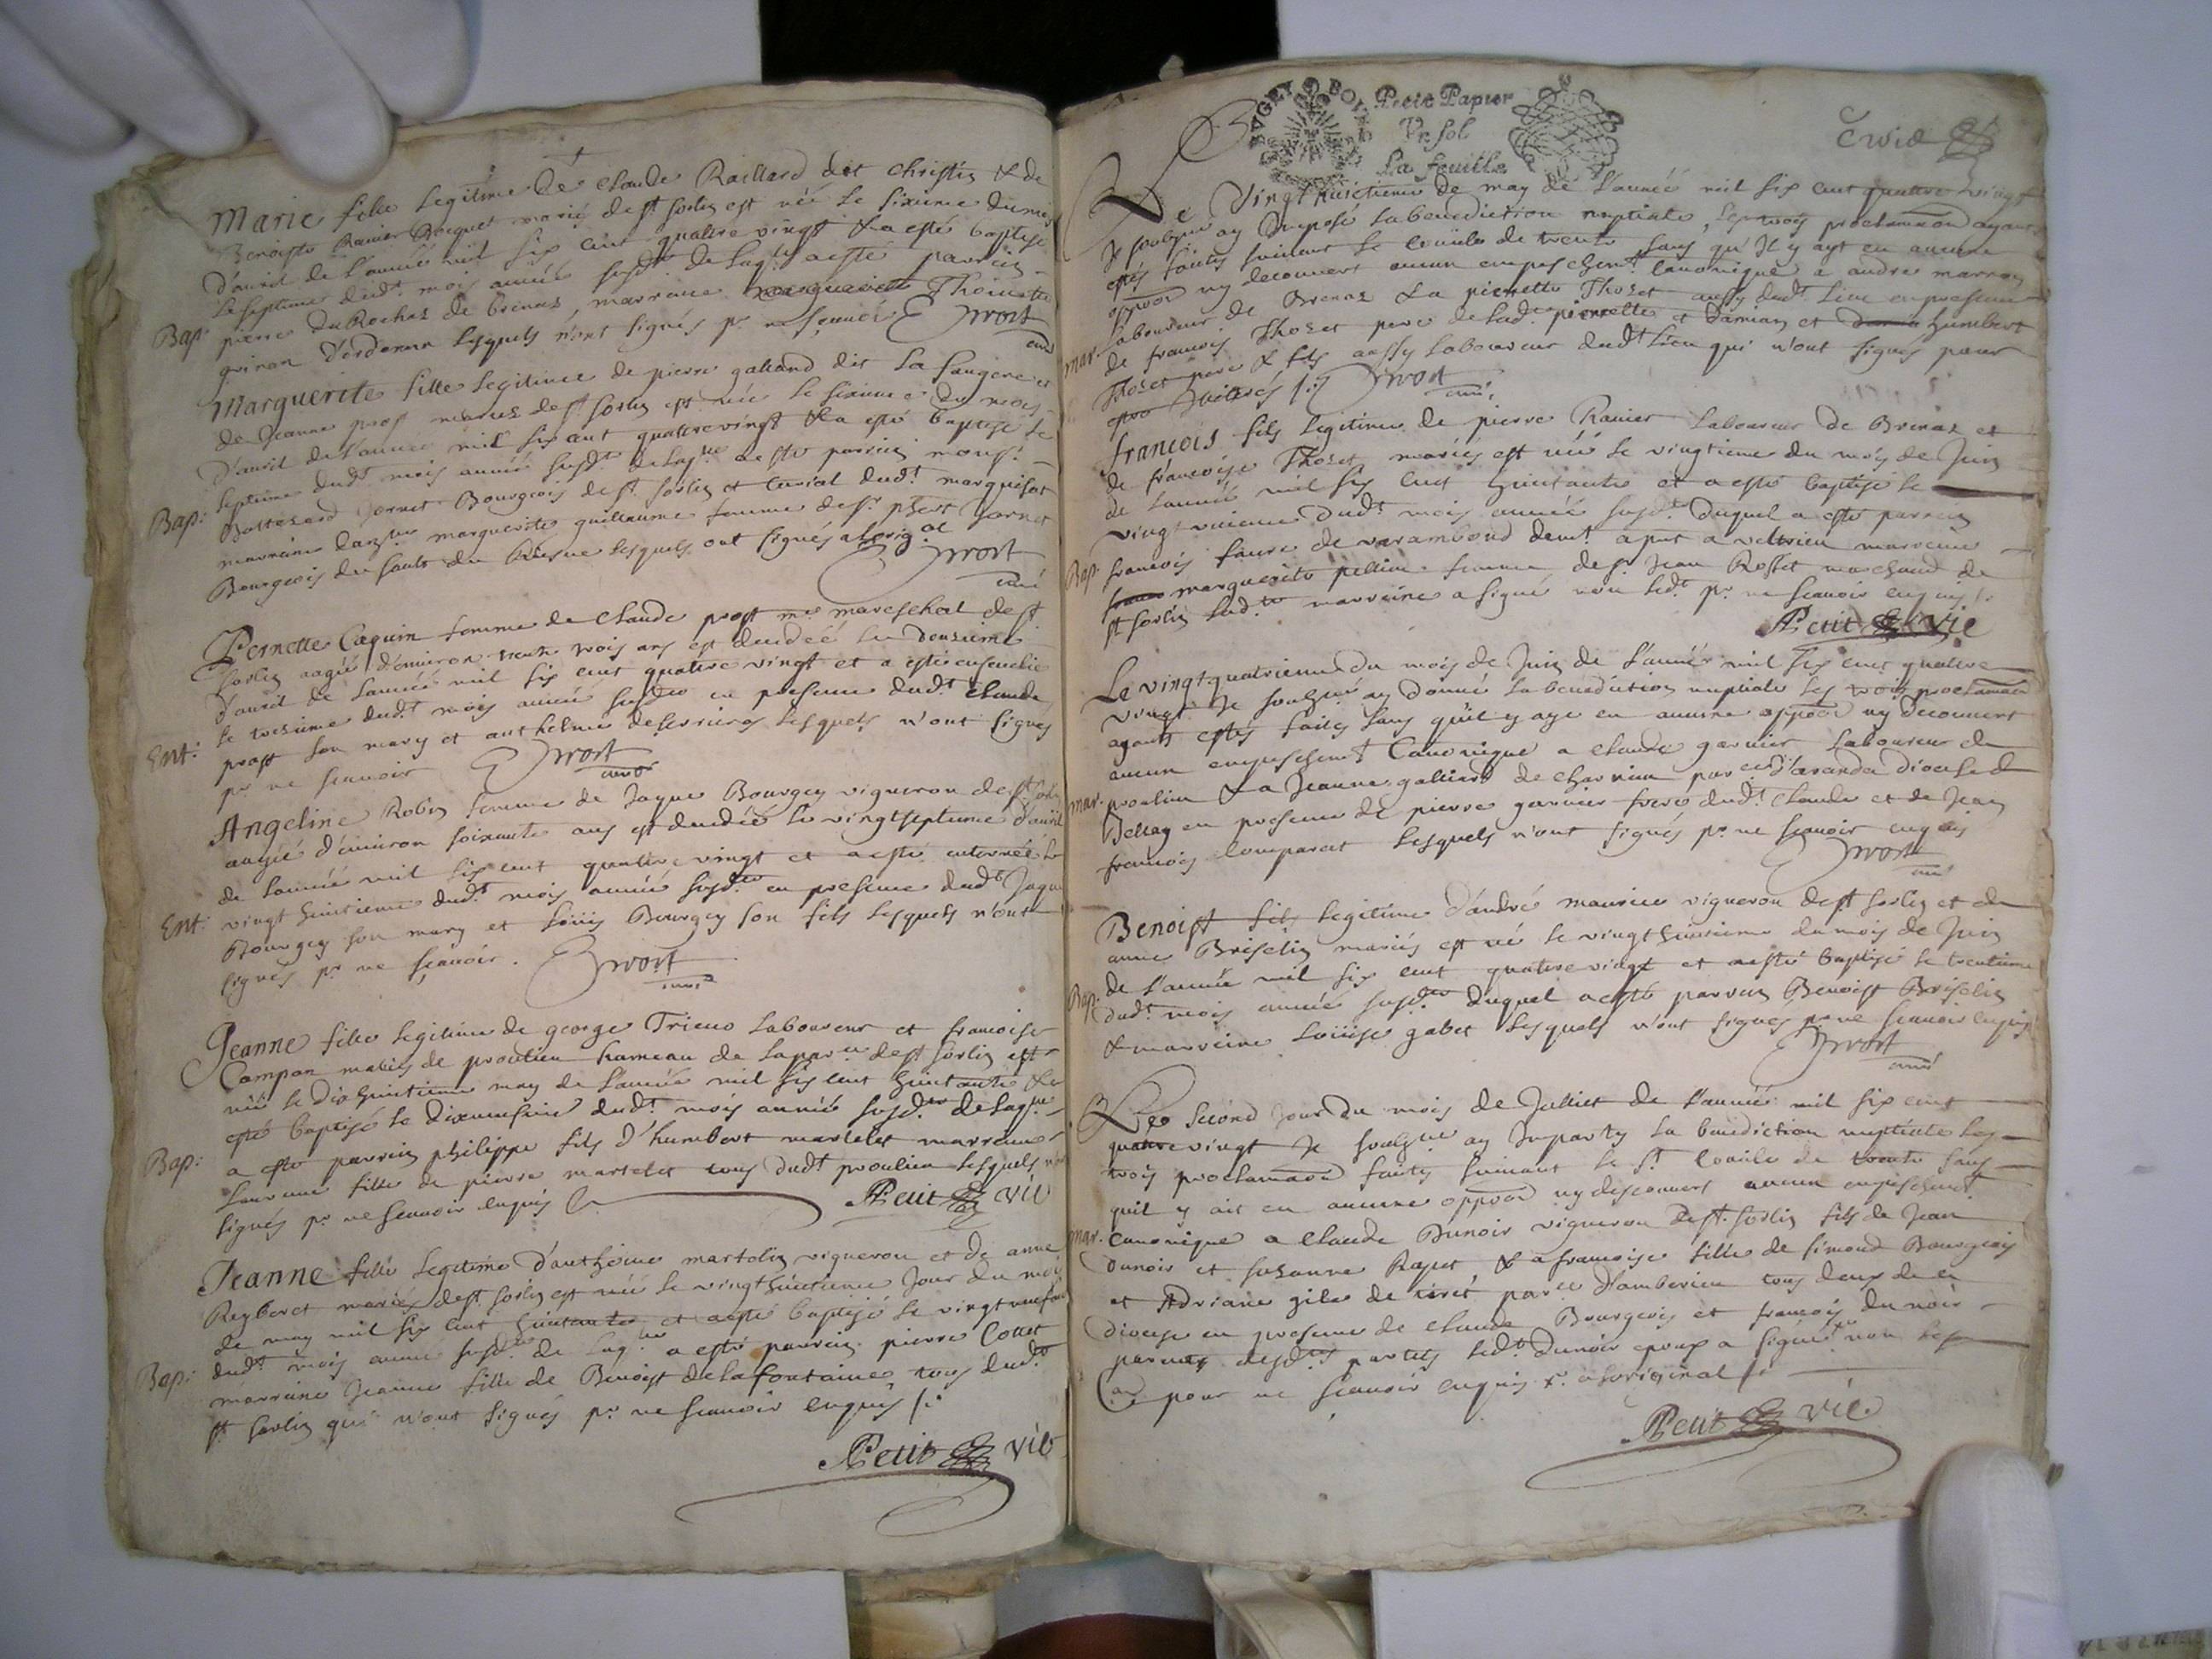 Marie fille legitime de Claude Raillard dit Christin & de
Benoiste Ranier Bocquet mariés de st sorlin est née le sixieme du mois
d'auril de l'année mil six cent quatre vingt & a esté baptisé
le septieme dudt mois année susdt de laqlle a esté parrein
Bap: pierre du Rochas de brenas, marreine Thoinette
lesquels n'ont signés pr ne sçauoir
curé
Marguerite fille legitime de pierre galland dit la fougere et
de Jeanne prost mariez de st sorlin est née le sixieme du mois
d'auril de l'année mil six cent quatre vingt & a esté baptisé le
septieme dudt mois année susdt de laqlle a esté parrein monsr
Bap: Baltesard Jornet Bourgeois de st sorlin et curial dudt marquisat
marreine marguerite guillaume femme de sr Jornet
Bourgeois du lesquels ont signés a l'origal
curé
Pernette Caquin femme de Claude prost me mareschal de st
sorlin aagée d'enuiron trente trois ans est decedée le douzieme
d'auril de l'année mil six cent quatre vingt et a esté enseuelie
le trezieme dudt mois année susde en presence dudt Claude
Ent: prost son mary et anthelme lesquels n'ont signés
pr ne sçauoir
curé
Angeline Robin femme de Jaque Bourgey vigneron de st sorlin
aagée d'enuiron soixante ans est decedée le vingtseptieme d'auril
de l'année mil six cent quatre vingt et a esté enterrée le
Ent: vingt huictieme dudt mois année susde en presence dudt Jaque
Bourgey son mary et Loüis Bourgey son fils lesquels n'ont
signés pr ne sçauoir.
curé
Jeanne fille legitime de george Trieno laboureur et francoise
Compan mariés de proulieu hameau de la parre de st sorlin est
née le dixhuictieme may de l'année mil six cent huictante & a
esté baptisé le dixneufuie dudt mois année susde de laqlle
Bap: a esté parrein philippe fils d'humbert martelet marreine
Laurence fille de pierre martelet tous dudt proulieu lesquels n'ont
signés pr ne sçauoir enquis
Petit vic
Jeanne fille legitime d'anthoine martolin vigneron et de anne
Reyberet mariés de st sorlin est née le vingthuictieme jour du mois
de may mil six cent huictante et a esté baptisé le vingtneufuie
Bap: dudt mois année susde de laqlle a esté parrein pierre Cottet
marreine Jeanne fille de Benoist de la fontaine, tous dudt
st sorlin qui n'ont signés pr ne sçauoir enquis
Petit vic
BVGEY Petit Papier
Vn sol
La feuille
Le Vingthuictieme de may de l'année mil six cent quatre vingt
Je soubzné ay Imposé la benediction nuptiale, les trois proclamaon ayants
estés faites suiuant le concile de trente sans qu'Il y ayt eu aucune
oppoon ny decouuert aucun empeschemt canonique a andre marron
mar. laboureur de Brenaz & a pierrette Thozet aussy dudt lieu en presence
de francois Thozet pere de lade pierrette et damian et humbert
Thozet pere & fils aussy laboureur dudt lieu qui n'ont signés pour
curé
francois fils legitime de pierre Ranier laboureur de Brenaz et
de francoise Thozet mariés est né le vingtieme du mois de Juin
de l'année mil six cent huictante et a esté baptisé le
vingt vnieme dudt mois année susde duquel a esté parrein
Bap. francois faure de varambond demt apnt a vellrieu marreine
marguerite pellin femme de sr Jean Rosset marchand de
st sorlin lade marreine a signé non ledt pr ne sçauoir enquis
Petit vic
Le vingtquatrieme du mois de Juin de l'année mil six cent quatre
vingt Je soubzné ay donné la benediction nuptiale les trois proclamaon
ayants estés faites sans qu'il y aye eu aucune oppoon ny decouuert
aucun empeschemt Canonique a Claude garnier laboureur de
mar. proulieu & a Jeanne galliard de charnieu parce d'aranda diocese de
Bellay en presence de pierre garnier frere dudt Claude et de Jean
francois Comparat lesquels n'ont signés pr ne sçauoir enquis
curé
Benoist fils legitime d'andré maurice vigneron de st sorlin et de
anne Briselin mariés est né le vingthuictieme du mois de Juin
Bap. de l'année mil six cent quatrevingt et a esté baptisé le trentieme
dudt mois année susde duquel a esté parrein Benoist Briselin
& marreine Loüise gabet lesquels n'ont signés pr ne sçauoir enquis
curé
Le second jour du mois de Julliet de l'année mil six cent
quatre vingt Je soubzné ay Imparty la benediction nuptiale les
trois proclamaon faites suiuant le st Concile de trente sans
quil y ait eu aucune oppoon ny descouuert aucun empeschemt
mar. canonique a Claude Dunoir vigneron de st. sorlin fils de Jean
dunoir et suzanne Rapet, & a francoise fille de simond Bourgeois
et Adriane gile de tiret parce d'amberieu tous deux de ce
diocese en presence de Claude Bourgeois et francois du noir
parents desdtes parties ledt. Dunoir epoux a signé non les
pour ne sçauoir enquis a l'original
Petit vic